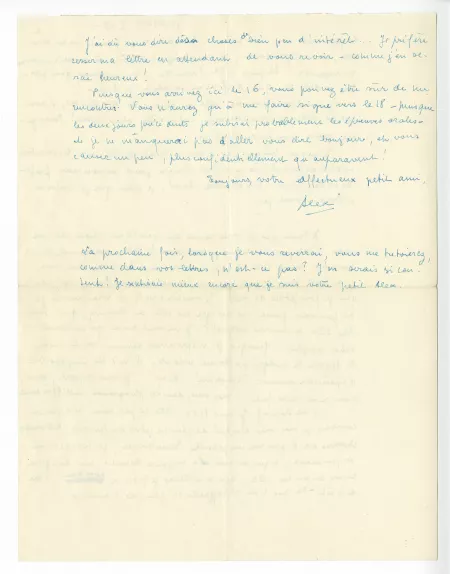 J'ai dû vous dire des choses bien peu d'intérêt... Je préfère
cesser ma lettre en attendant de vous revoir - comme j'en se-
rai heureux !
Puisque vous arrivez ici le 16, vous pouvez être sûr de me
rencontrer. Vous n'aurez qu'à me faire signe vers le 18 - puisque
les deux jours précédents je subirai probablement les épreuves orales -
et je ne manquerai pas d'aller vous dire bonjour, et vous
causer un peu, plus confidentiellement qu'auparavant !
Toujours, votre affectueux petit ami,
Alex
La prochaine fois, lorsque je vous reverrai, vous me tutoierez,
comme dans vos lettres, n'est-ce pas ? J'en serais si con-
tent ! Je sentirais mieux encore que je suis votre petit Alex.